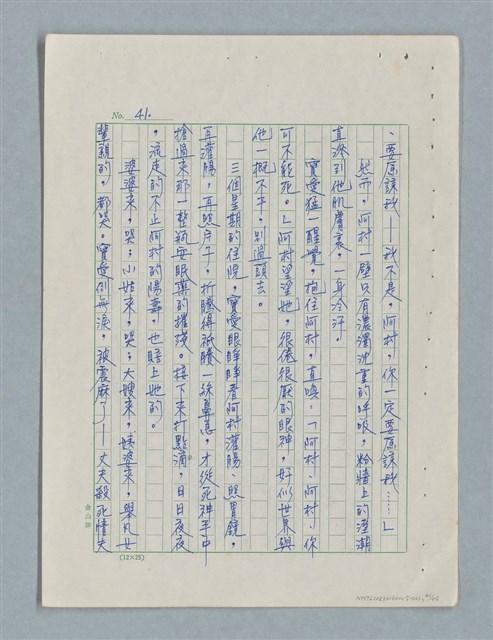 No. 41.
、要原諒我——我不是，阿村，你一定要原諒我……」
然而，阿村一壁只有濃濁沈重的呼吸，粉牆上的溼潮
直滲到他肌膚裏，一身冷汗。
寶愛猛一醒覺，抱住阿村，直喚：「阿村、阿村，你
可不能死。」阿村望望她，很倦很厭的眼神，好似世界與
他一概不干，別過頭去。
三個星期的住院，寶愛眼睜睜看阿村灌腸、照胃鏡，
再灌腸，再照片子，折騰得祇賸一絲鼻息，才從死神手中
搶過來那一整瓶安眠藥的摧殘。接下來打點滴，日日夜夜
，滴走的不止阿村的陽壽，也賠上她的。
婆婆來，哭；小姑來，哭；大嫂來，姨婆來，舉凡女
輩親的，都哭。寶愛倒無淚，被震麻了—丈夫殺死情夫
金山牌
(12×25)